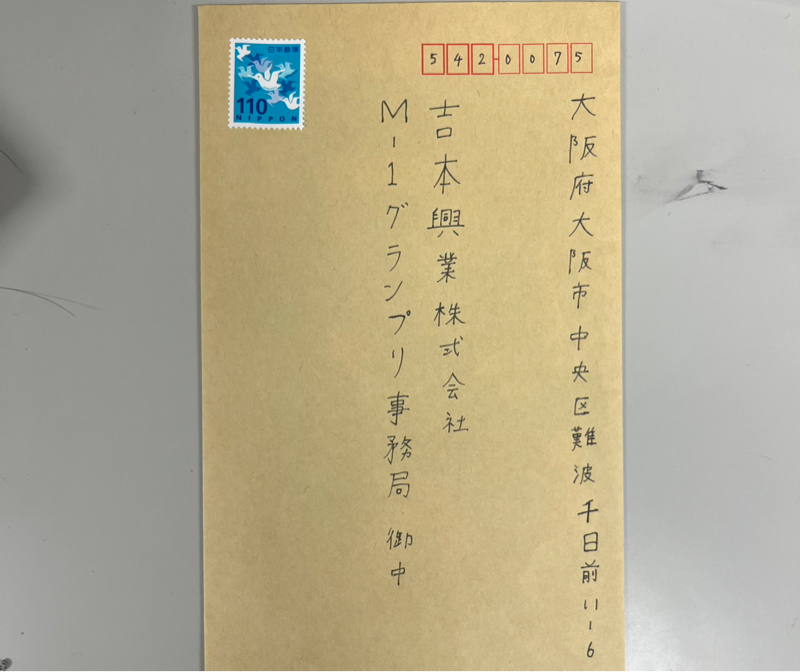 日本郵便
110
NIPPON
542-0075
大阪府大阪市中央区難波千日前11-6
吉本興業株式会社
M-1グランプリ事務局 御中